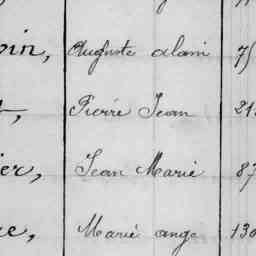 vin, Auguste alain 75
t, Pierre Jean
ier, Jean Marie 87
re, Marie ange 130